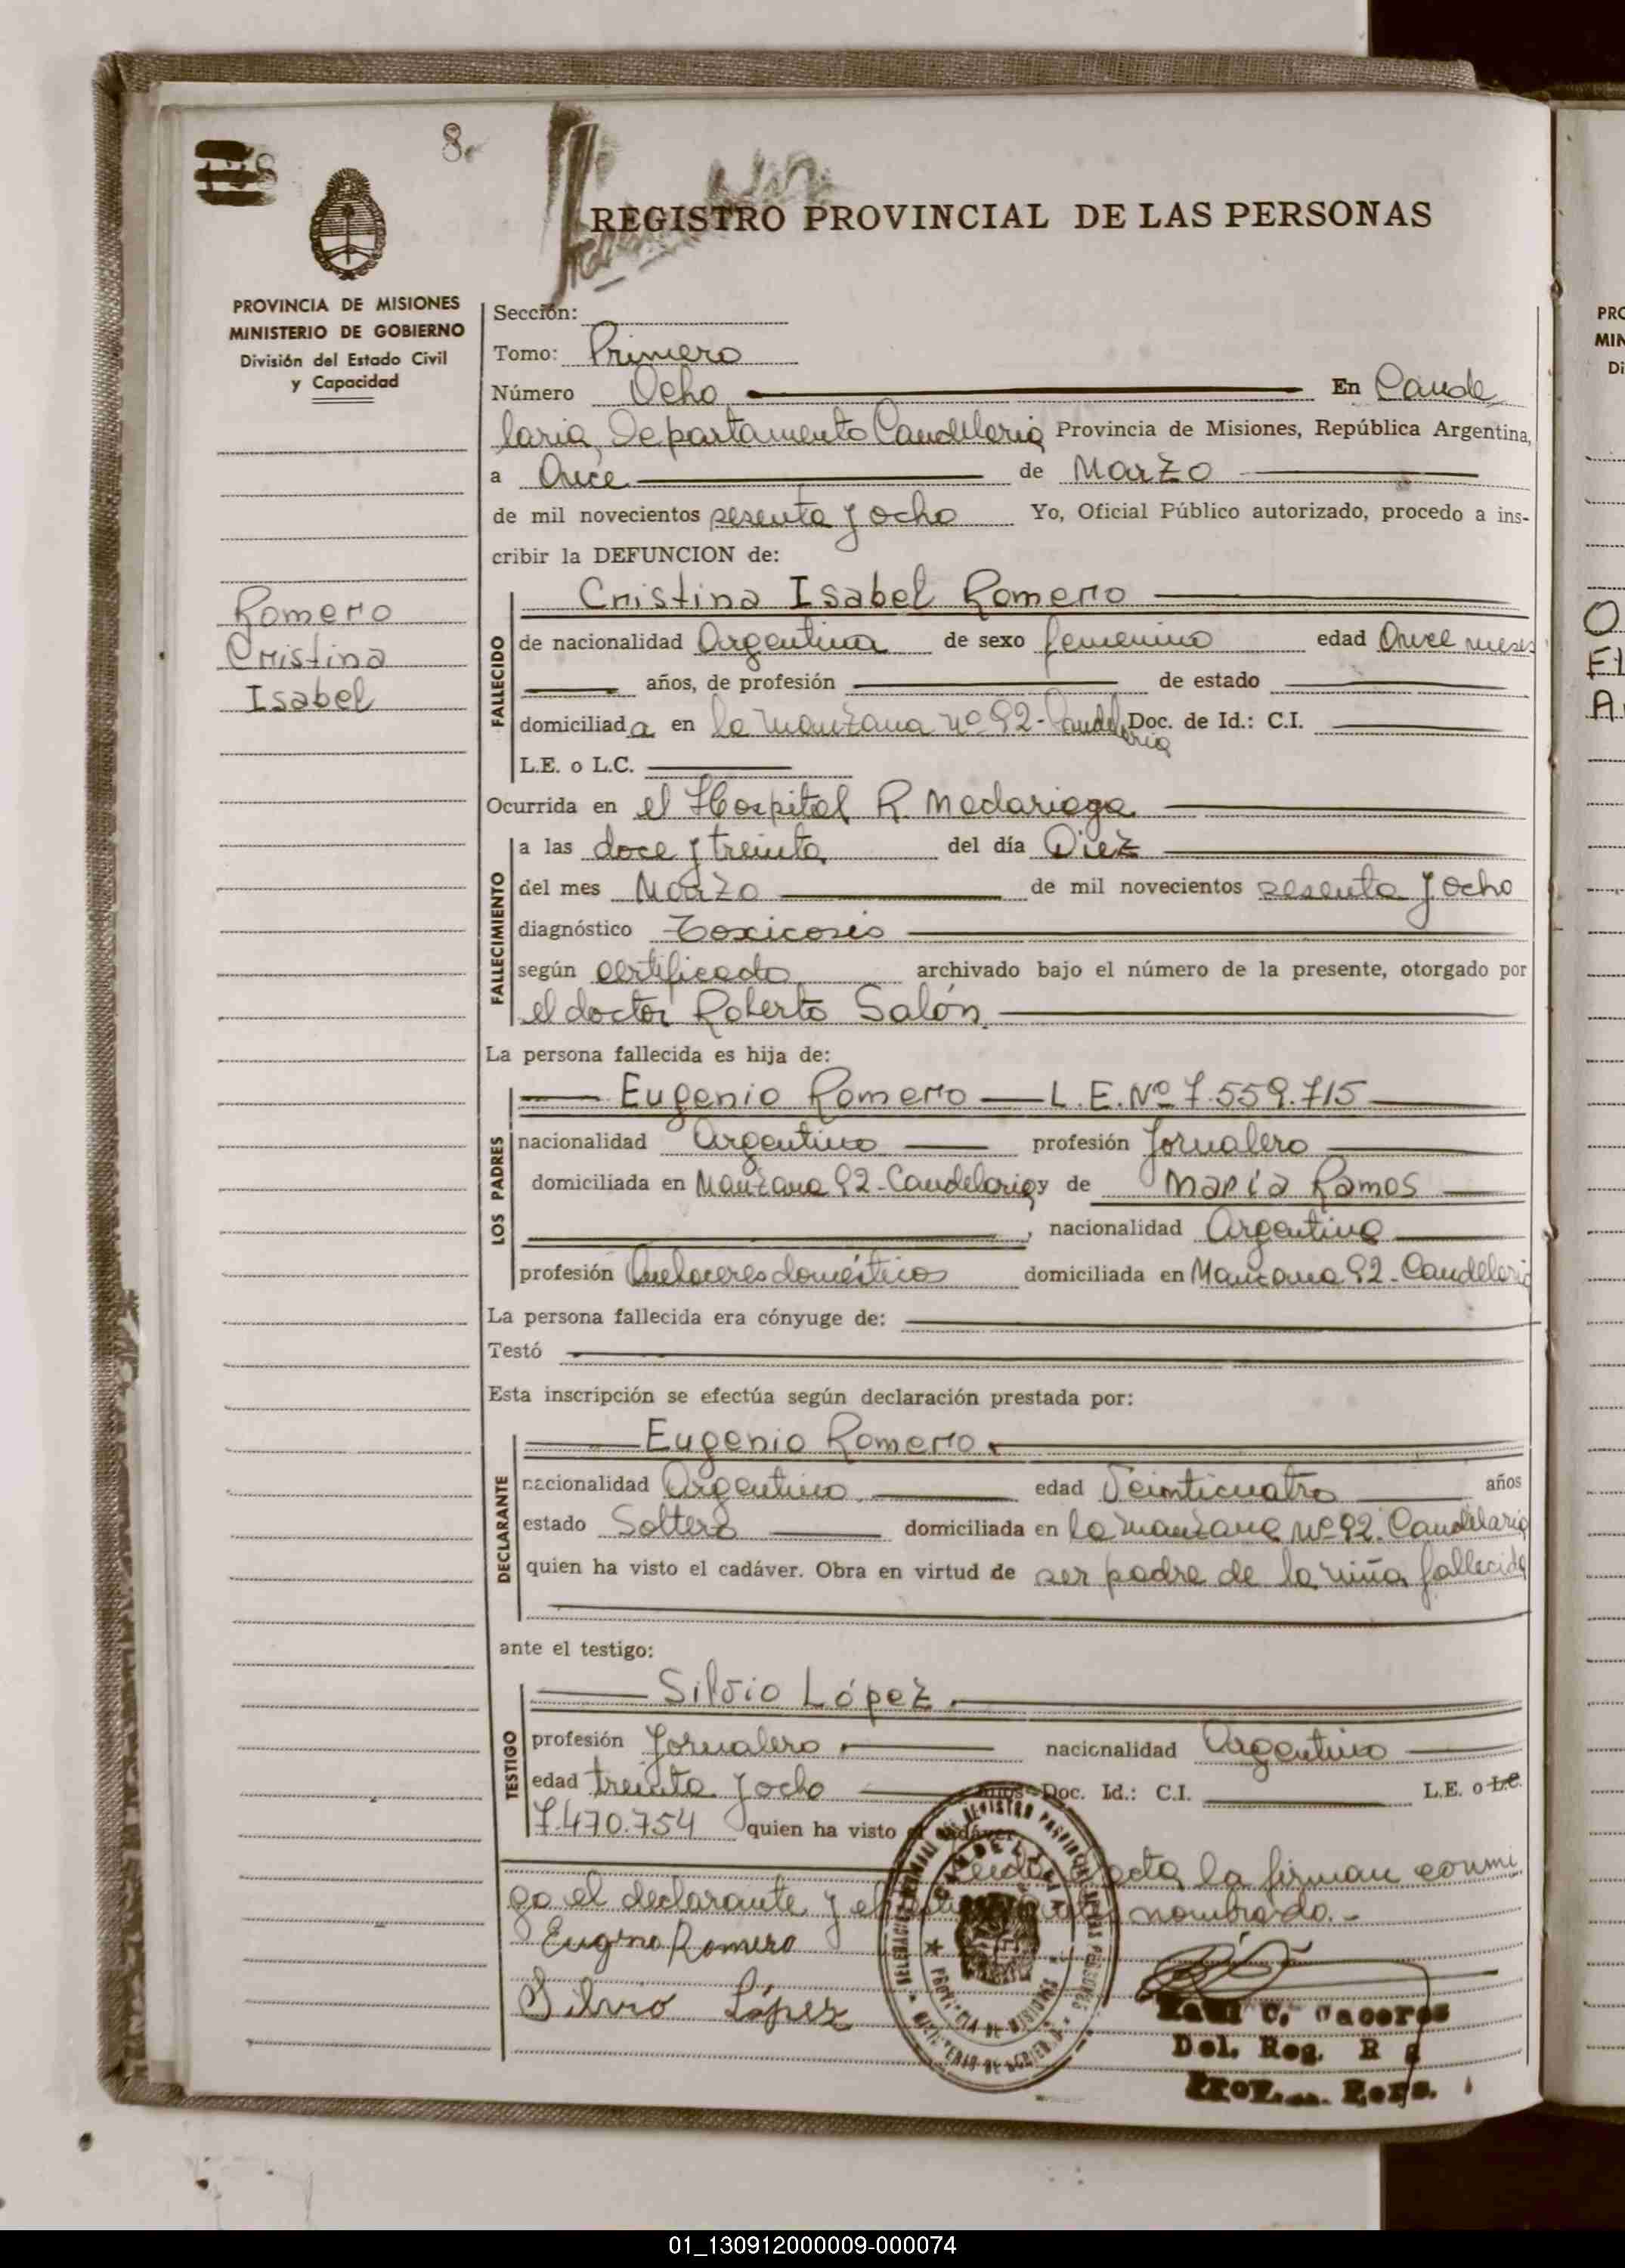 8.
REGISTRO PROVINCIAL DE LAS PERSONAS
PROVINCIA DE MISIONES
MINISTERIO DE GOBIERNO
División del Estado Civil
y Capacidad
Romero
Cristina
Isabel
Sección:
Tomo: Primero
Número Ocho En Cande
laria, Departamento Candelaria Provincia de Misiones, República Argentina,
a Once de Marzo
de mil novecientos sesenta y ocho Yo, Oficial Público autorizado, procedo a ins-
cribir la DEFUNCION de:
Cristina Isabel Romero
FALLECIDO
de nacionalidad Argentina de sexo femenino edad Once meses
años, de profesión de estado
domiciliada en la manzana nº 92-Candelaria Doc. de Id.: C.I.
L.E. o L.C.
Ocurrida en el Hospital R. Madariaga
FALLECIMIENTO
a las doce y treinta del día Diez
del mes Marzo de mil novecientos sesenta y ocho
diagnóstico Toxicosis
según certificado archivado bajo el número de la presente, otorgado por
el doctor Roberto Salón.
La persona fallecida es hija de:
LOS PADRES
Eugenio Romero L.E. Nº 7.559.715
nacionalidad Argentino profesión Jornalero
domiciliada en Manzana 92-Candelaria y de María Ramos
, nacionalidad Argentina
profesión Quehaceres domésticos domiciliada en Manzana 92-Candelaria
La persona fallecida era cónyuge de:
Testó
Esta inscripción se efectúa según declaración prestada por:
DECLARANTE
Eugenio Romero.
nacionalidad Argentino edad Veinticuatro años
estado Soltero domiciliada en la manzana nº 92. Candelaria
quien ha visto el cadáver. Obra en virtud de ser padre de la niña fallecida
ante el testigo:
TESTIGO
Silvio López.
profesión Jornalero. nacionalidad Argentino
edad treinta y ocho años Doc. Id.: C.I. L.E. o L.C.
7.470.754 quien ha visto el cadáver.
Leída acta, la firman conmi
go el declarante y el nombrado.-
Eugenio Romero
Silvio López
Raul C. Caceres
Del. Reg.
Prov. Pers.
PRO
MIN
Di
O
El
A
01_130912000009-000074